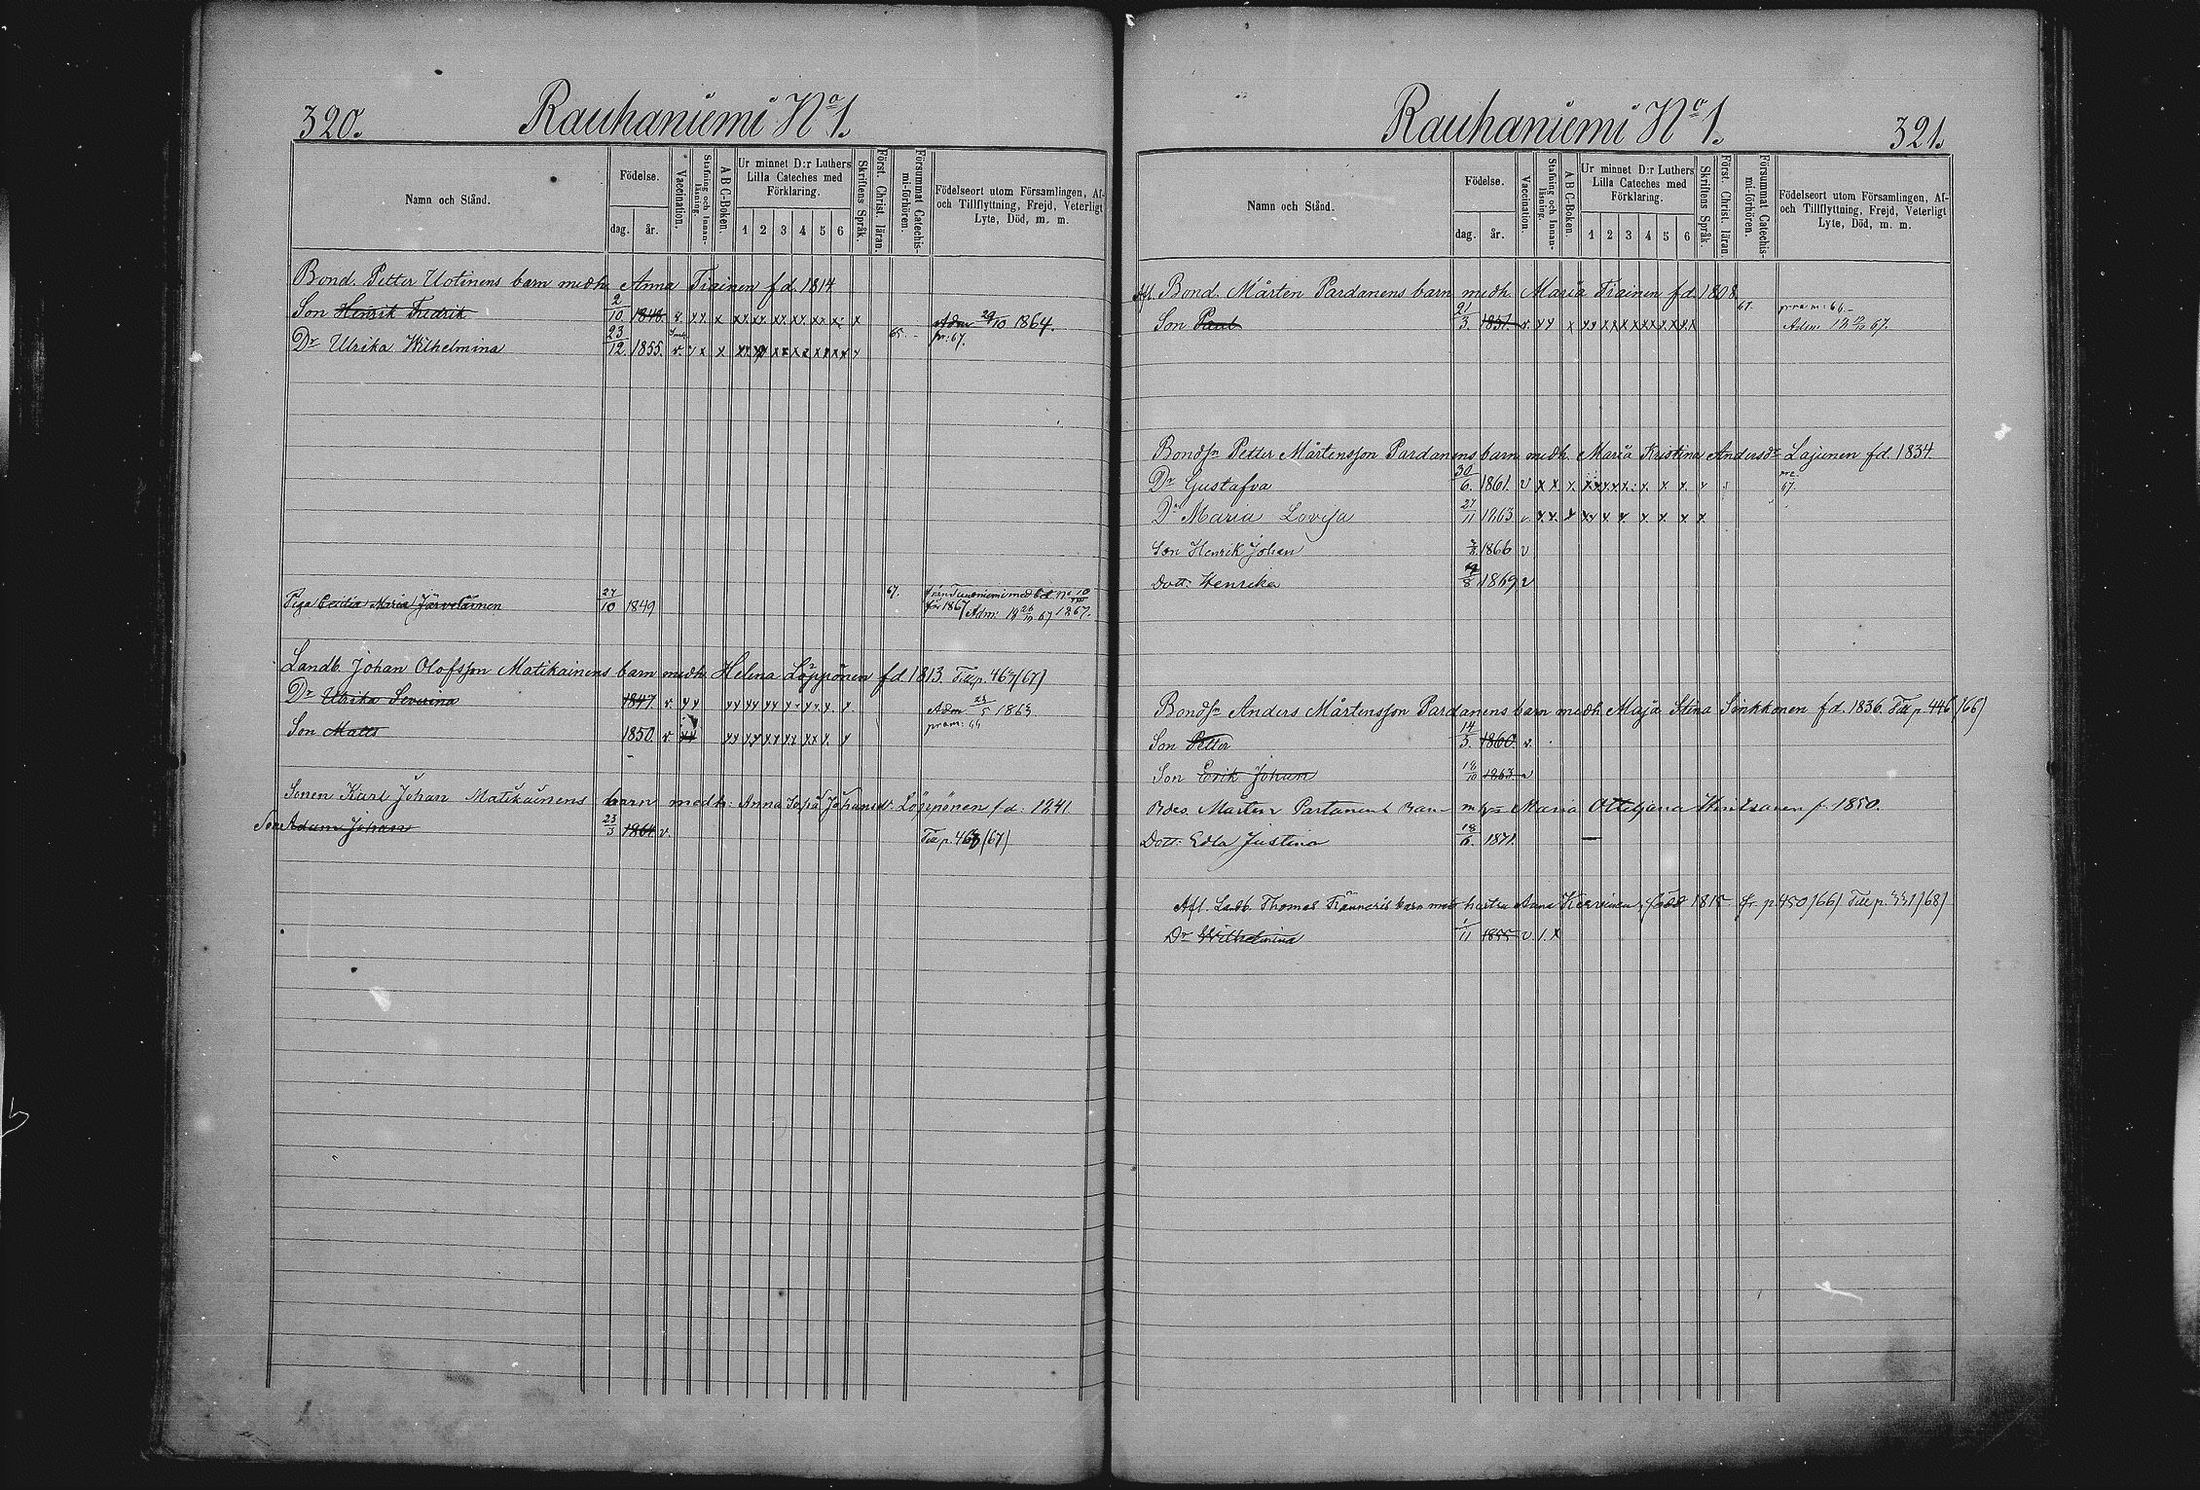 320.
Rauhaniemi No 1.
Namn och Stånd.
Födelse.
dag.
år.
Vaccination.
Stafning och Innan-
läsning.
A B C-Boken.
Ur minnet D:r Luthers
Lilla Cateches med
Förklaring.
1 2 3 4 5 6
Skriftens Språk.
Först. Christ. läran.
Försummat Catechis-
mi-förhören.
Födelseort utom Församlingen, Af-
och Tillflyttning, Frejd, Veterligt
Lyte, Död, m. m.
Bond. Petter Uotinens barn medh. Anna Tiainen fd. 1814
Son Henrik Fredrik 2/10 1846. x x x x Adm 29/10 1864.
Dr Ulrika Wilhelmina 23/12 1855. v. 65. fr: 67.
Piga Cecilia Maria Järveläinen 27/10 1849 67.
för 1867 Adm.
Landb. Johan Olofsson Matikainens barn medh. Helena Löppönen fd. 1813. Till p. 467/67)
Dr Ulrika Severina 1847 v. Adm 1863
Son Matts 1850. v.
Sonen Karl Johan Matikainens barn medh: Anna Sofia Johansdr Löppönen fd: 1841.
Son Adam Johan 23/3 1864 v. Till p. 467/67)
Rauhaniemi No 1.
321.
Namn och Stånd.
Födelse.
dag.
år.
Vaccination.
Stafning och Innan-
läsning.
A B C-Boken
Ur minnet D:r Luthers
Lilla Cateches med
Förklaring.
1 2 3 4 5 6
Skriftens Språk.
Först. Christ. läran
Försummat Catechis-
mi-förhören.
Födelseort utom Församlingen, Af-
och Tillflyttning, Frejd, Veterligt
Lyte, Död, m. m.
Afl. Bond. Mårten Pardanens barn medh. Maria Tiainen fd. 1808
Son Paul 21/3. 1851. v. 67. Adm. 67.
Bondsn Petter Mårtensson Pardanens barn medh. Maria Kristina Andersdr Lajunen fd. 1834
Dr Gustafva 30/6. 1861. v 67.
Dr Maria Lovisa 27/11 1863
Son Henrik Johan 1866 v
Dott: Henrika 1869 v
Bondsn Anders Mårtensson Pardanens barn medh Maja Stina Sinkkonen fd. 1836. Till p. 446/66)
Son Petter 14/3. 1860. v.
Son Erik Johan 18/10 1863 v
Bdes. Mårten Partanens Barn m hu Maria Ottiljana Hintsanen f. 1850.
Dott: Edla Justina 18/6. 1871. —
Afl. Landb. Thomas barn med hustru Anna född 1815 fr p 450/66) Till p. 331/68)
Dr Wilhelmina 1/11 1855 v. / x